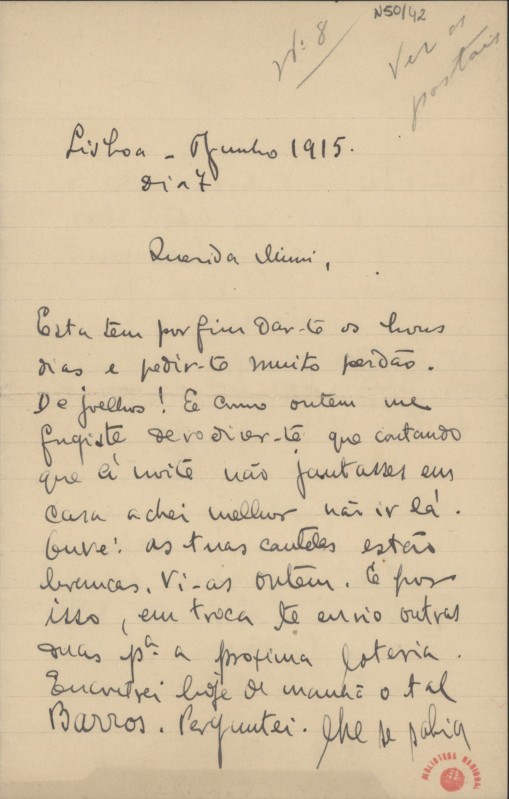 N50/42
Nº 8
Ver os
postais
Lisboa - Junho 1915.
Dia 7
Querida Mimi,
Esta tem por fim dar-te os bons
dias e pedir-te muito perdão.
De joelhos! E como ontem me
fugiste devo dizer-te que contando
que à noite não jantasses em
casa achei melhor não ir lá.
Ouve: as tuas cautelas estão
brancas. Vi-as ontem. E por
isso, em troca te envio outras
duas pª a proxima loteria.
Encontrei hoje de manhã o tal
Barros. Perguntei-lhe se sabia
BIBLIOTECA NACIONAL